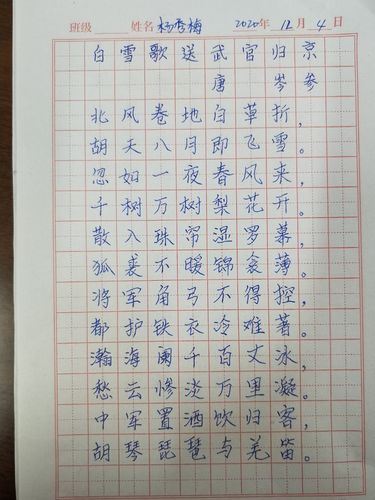 班级 姓名 杨秀梅 2020年 12月 4日
白雪歌送武官归京
唐 岑参
北风卷地白草折，
胡天八月即飞雪。
忽如一夜春风来，
千树万树梨花开。
散入珠帘湿罗幕，
狐裘不暖锦衾薄。
将军角弓不得控，
都护铁衣冷难著。
瀚海阑千百丈冰，
愁云惨淡万里凝。
中军置酒饮归客，
胡琴琵琶与羌笛。